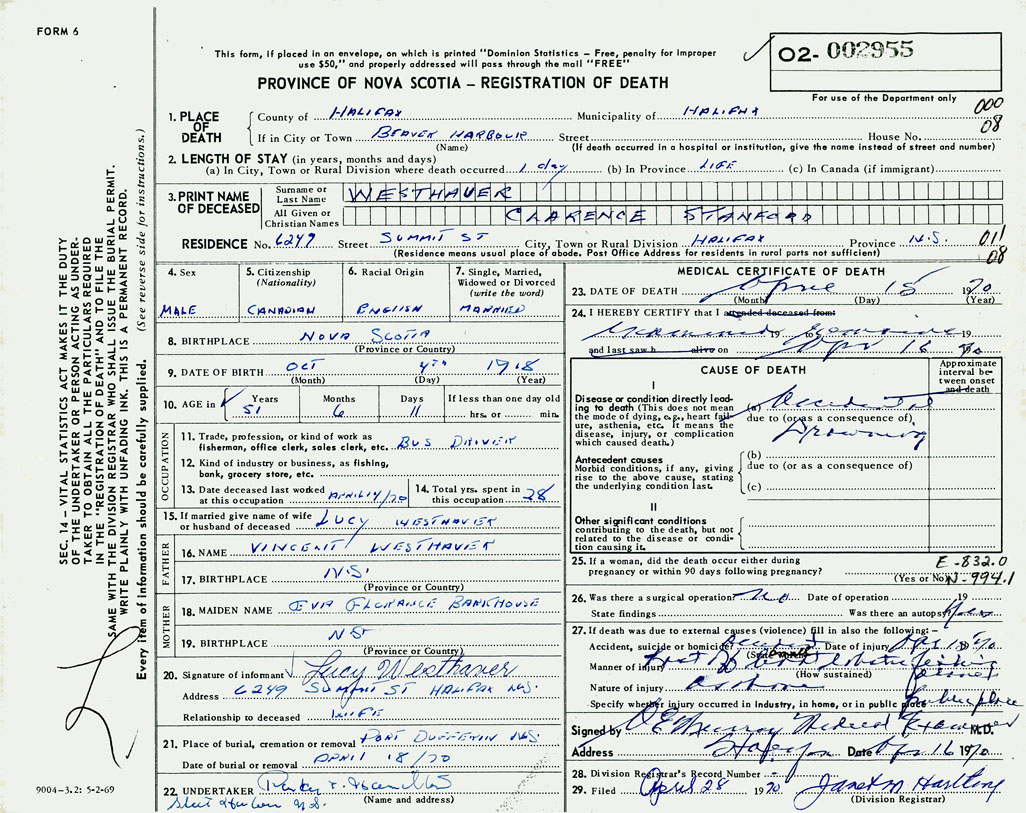 FORM 6
This form, if placed in an envelope, on which is printed "Dominion Statistics – Free, penalty for improper
use $50," and properly addressed will pass through the mail "FREE"
PROVINCE OF NOVA SCOTIA – REGISTRATION OF DEATH
O2- 002955
For use of the Department only
000
08
1. PLACE OF DEATH
County of HALIFAX Municipality of HALIFAX
If in City or Town BEAVER HARBOUR Street House No.
(Name) (If death occurred in a hospital or institution, give the name instead of street and number)
2. LENGTH OF STAY (in years, months and days)
(a) In City, Town or Rural Division where death occurred 1 day (b) In Province LIFE (c) In Canada (if immigrant)
3. PRINT NAME OF DECEASED
Surname or Last Name WESTHAVER
All Given or Christian Names CLARENCE STANFORD
RESIDENCE No. 6249 Street SUMMIT ST City, Town or Rural Division HALIFAX Province N.S.
(Residence means usual place of abode. Post Office Address for residents in rural parts not sufficient)
011
08
SEC. 14 – VITAL STATISTICS ACT MAKES IT THE DUTY
OF THE UNDERTAKER OR PERSON ACTING AS UNDER-
TAKER TO OBTAIN ALL THE PARTICULARS REQUIRED
IN THE "REGISTRATION OF DEATH" AND TO FILE THE
SAME WITH THE DIVISION REGISTRAR WHO SHALL ISSUE THE BURIAL PERMIT.
WRITE PLAINLY WITH UNFADING INK. THIS IS A PERMANENT RECORD.
Every item of information should be carefully supplied. (See reverse side for instructions.)
4. Sex
MALE
5. Citizenship
(Nationality)
CANADIAN
6. Racial Origin
ENGLISH
7. Single, Married,
Widowed or Divorced
(write the word)
MARRIED
8. BIRTHPLACE NOVA SCOTIA
(Province or Country)
9. DATE OF BIRTH OCT 4th 1918
(Month) (Day) (Year)
10. AGE in
Years 51
Months 6
Days 11
If less than one day old
hrs. or min.
OCCUPATION
11. Trade, profession, or kind of work as
fisherman, office clerk, sales clerk, etc. BUS DRIVER
12. Kind of industry or business, as fishing,
bank, grocery store, etc.
13. Date deceased last worked
at this occupation APRIL 14/70
14. Total yrs. spent in
this occupation 28
15. If married give name of wife
or husband of deceased LUCY WESTHAVER
FATHER
16. NAME VINCENT WESTHAVER
17. BIRTHPLACE N.S.
(Province or Country)
MOTHER
18. MAIDEN NAME EVA FLORANCE BARKHOUSE
19. BIRTHPLACE NS
(Province or Country)
20. Signature of informant Lucy Westhaver
Address 6249 SUMMIT ST HALIFAX N.S.
Relationship to deceased WIFE
21. Place of burial, cremation or removal PORT DUFFERIN N.S.
Date of burial or removal APRIL 18/70
22. UNDERTAKER
(Name and address)
N.S.
9004–3.2: 5-2-69
MEDICAL CERTIFICATE OF DEATH
23. DATE OF DEATH April 15 1970
(Month) (Day) (Year)
24. I HEREBY CERTIFY that I attended deceased from
19 to 19
and last saw h alive on Apr 16 70
CAUSE OF DEATH
Approximate
interval be-
tween onset
and death
I
Disease or condition directly lead-
ing to death (This does not mean
the mode of dying, e.g., heart fail-
ure, asthenia, etc. It means the
disease, injury, or complication
which caused death.)
(a) Accidental
due to (or as a consequence of)
Drowning
Antecedent causes
Morbid conditions, if any, giving
rise to the above cause, stating
the underlying condition last.
(b)
due to (or as a consequence of)
(c)
II
Other significant conditions
contributing to the death, but not
related to the disease or condi-
tion causing it.
25. If a woman, did the death occur either during
pregnancy or within 90 days following pregnancy?
(Yes or No)
E-832.0
N-994.1
26. Was there a surgical operation? No Date of operation 19
State findings Was there an autopsy? Yes
27. If death was due to external causes (violence) fill in also the following:–
Accident, suicide or homicide Accident Date of injury Apr 15 1970
Manner of injury
(How sustained)
Nature of injury
Specify whether injury occurred in industry, in home, or in public place Public place
Signed by Medical Examiner M.D.
Address Halifax Date Apr 16 1970
28. Division Registrar's Record Number
29. Filed April 28 1970
(Division Registrar)